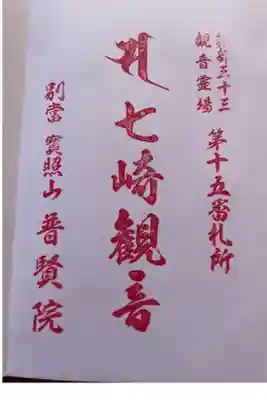 三十三
観音霊場
第十五番札所
七崎観音
別當 寳照山 普賢院